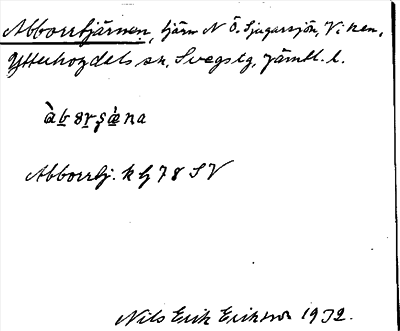 Abborrtjärnen, tjärn N Ö. Sjugarsjön, Viken,
Ytterhogdals sn, Svegs tg, Jämtl. l.
Abborrtj. k bl 78 SV
Nils Erik Erikson 1932.